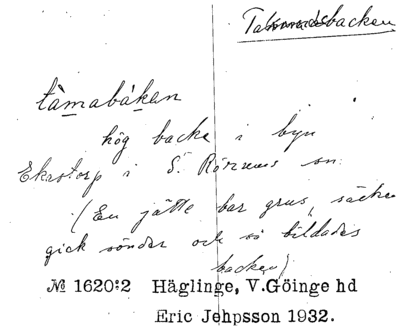 backen
tåmabåkan
hög backe i byn
Ekastorp i S. Rörums sn.
(En jätte bar grus, säcken
gick sönder och så bildades
backen)
№ 1620:2 Häglinge, V.Göinge hd
Eric Jehpsson 1932.